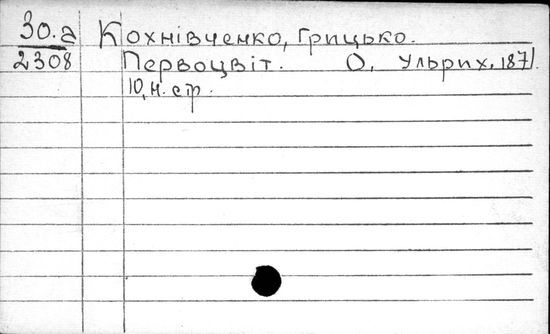 30.a Кохнівченко, Грицько.
2308 Первоцвіт. О, Ульрих, 1871.
10, н. стр.